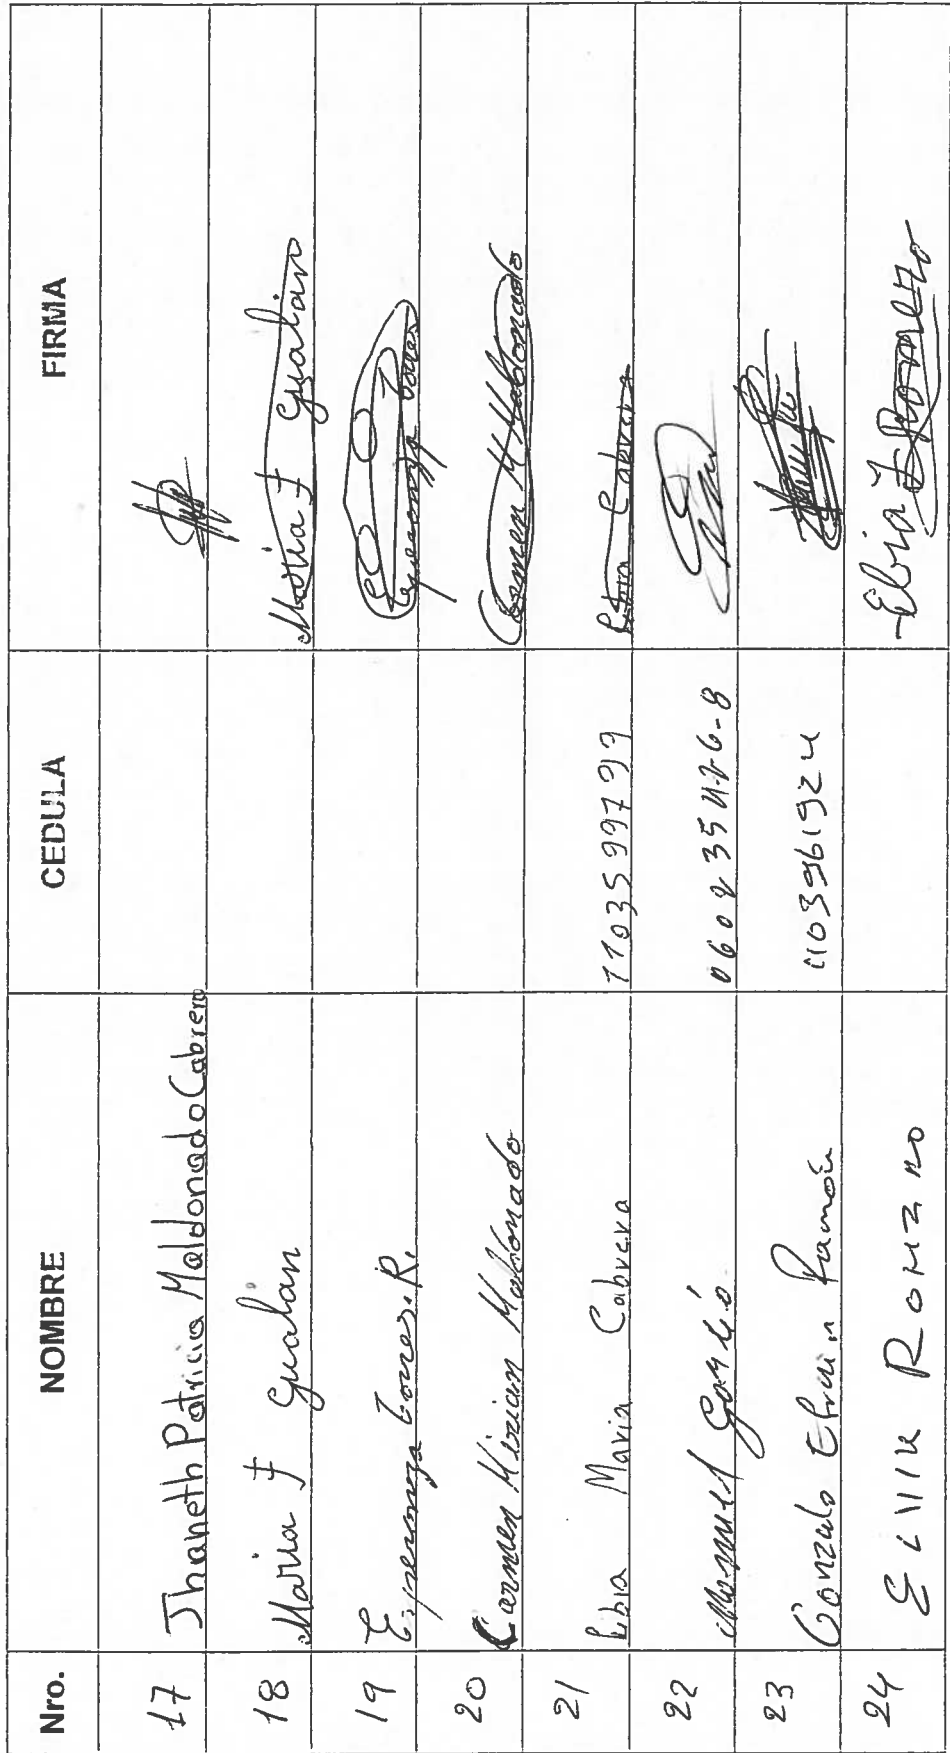 Nro. NOMBRE CEDULA FIRMA
17 Jhaneth Patricia Maldonado Cabrera
18 Maria F Gualan Maria F Gualan
19 Esperanza Torres. R. Esperanza Torres
20 Carmen Mirian Maldonado Carmen M Maldonado
21 Libia Maria Cabrera 1103599799 Libia Cabrera
22 Manuel 060235426-8
23 Gonzalo Efrain Ramón 1103961924
24 Romero Elvia Romero